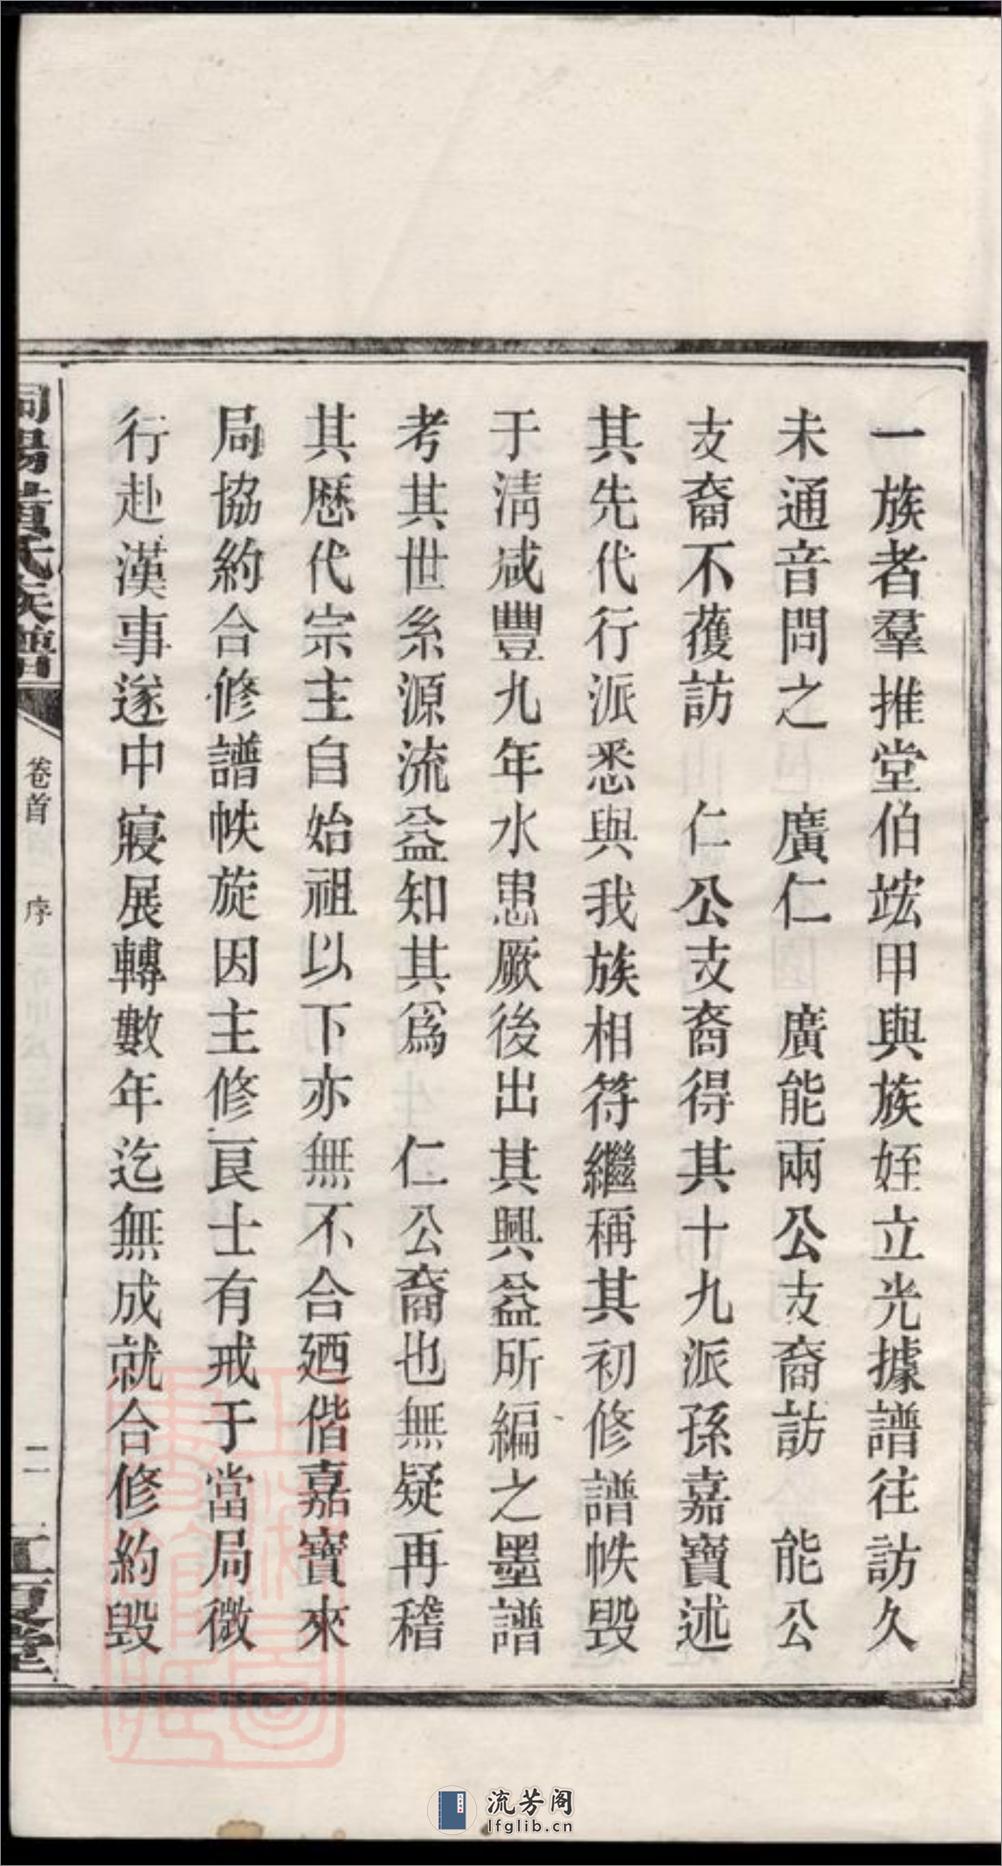 一族者羣推堂伯竑甲與族姪立光據譜往訪久
未通音問之　廣仁　廣能兩公支裔訪　能公
支裔不獲訪　仁公支裔得其十九派孫嘉寶述
其先代行派悉與我族相符繼稱其初修譜帙毀
于淸咸豐九年水患厥後出其興益所編之墨譜
考其世系源流益知其爲　仁公裔也無疑再稽
其歷代宗主自始祖以下亦無不合廼偕嘉寶來
局協約合修譜帙旋因主修良士有戒于當局微
行赴漢事遂中寢展轉數年迄無成就合修約毀
黃氏族譜
卷首　序
二
江夏堂
流芳阁
lfglib.cn